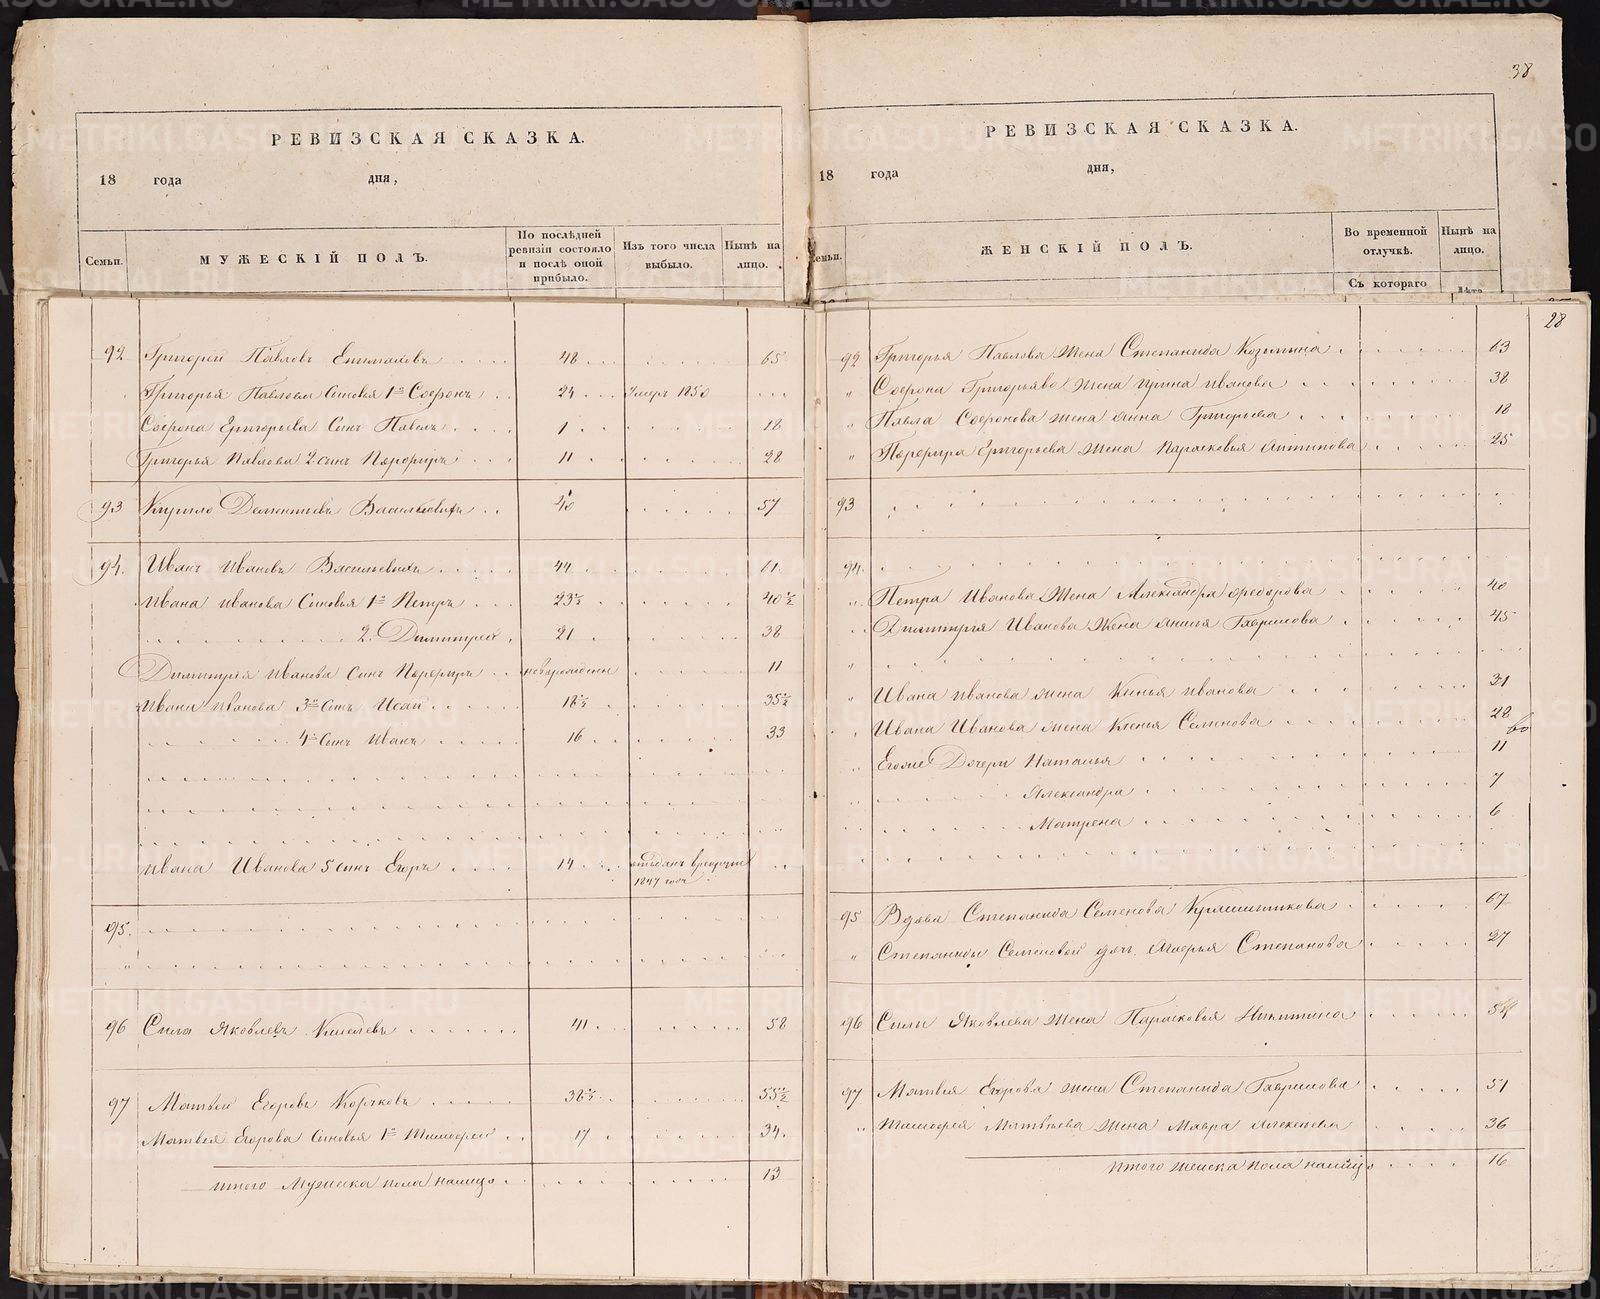 38
РЕВИЗСКАЯ СКАЗКА.
18 года дня,
Семьи.
МУЖЕСКІЙ ПОЛЪ.
По послѣдней ревизіи состояло и послѣ оной прибыло.
Изъ того числа выбыло.
Нынѣ на лицо.
92 Григорей Павловъ 48 65
Григорья Павлова Сыновья 1й Софронъ 24 Умеръ 1850
Софрона Григорьева Сынъ Павелъ 1 18
Григорья Павлова 2 сынъ Порфиръ 11 28
93 Кирило Дементьевъ Васильевыхъ 40 57
94. Иванъ Ивановъ Васильевыхъ 44 61
Ивана Иванова Сыновья 1й Петръ 23½ 40½
2. Димитрей 21 38
Димитрия Иванова Сынъ Порфиръ новорожденный 11
Ивана Иванова 3й Сынъ Исай 18½ 35½
4й Сынъ Иванъ 16 33
Ивана Иванова 5 сынъ Егоръ 14 отданъ в рекруты 1847 года
95.
96 Сила Яковлевъ Киселевъ 41 58
97 Матвей Егоровъ Корчковъ 38½ 55½
Матвея Егорова Сыновья 1й Тимофей 17 34.
Итого Мужеска пола налицо 13
РЕВИЗСКАЯ СКАЗКА.
18 года дня,
Семьи.
ЖЕНСКІЙ ПОЛЪ.
Во временной отлучкѣ.
Нынѣ на лицо.
Съ котораго
Лѣта
28
92 Григорья Павлова Жена Степанида Козмина 63
" Софрона Григорьева Жена Ирина Иванова 38
" Павла Софронова Жена Анна Григорьева 18
" Порфира Григорьева Жена Парасковья Антипова 25
93
94.
" Петра Иванова Жена Александра Федорова 40
" Димитрия Иванова Жена Гаврилова 45
"
" Ивана Иванова Жена Иванова 31
" Ивана Иванова Жена Семенова 28
" Егоже Дочери Наталья 11
" Александра 7
" Матрена 6
95 Вдова Степанида Семенова Крашенникова 67
" Степаниды Семеновой дочь Марья Степанова 27
96 Силы Яковлева Жена Парасковья Никитина 54
97 Матвея Егорова жена Степанида Гаврилова 51
" Тимофея Матвеева Жена Мавра Алексеева 36
Итого женска пола налицо 16
METRIKI.GASO-URAL.RU